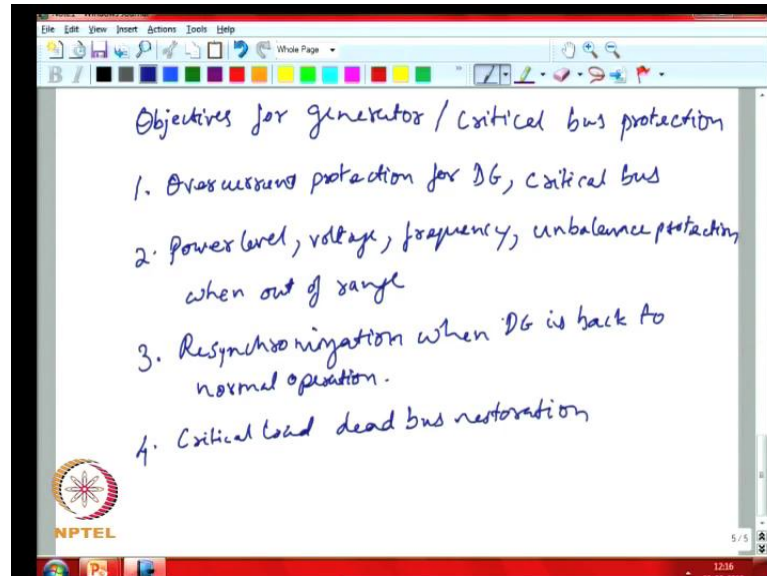 File Edit View Insert Actions Tools Help
Whole Page
B I
Objectives for generator / Critical bus protection
1. Overcurrent protection for DG, critical bus
2. Power level, voltage, frequency, unbalance protection
when out of range
3. Resynchronization when DG is back to
normal operation.
4. Critical load dead bus restoration
NPTEL
5/5
12:16